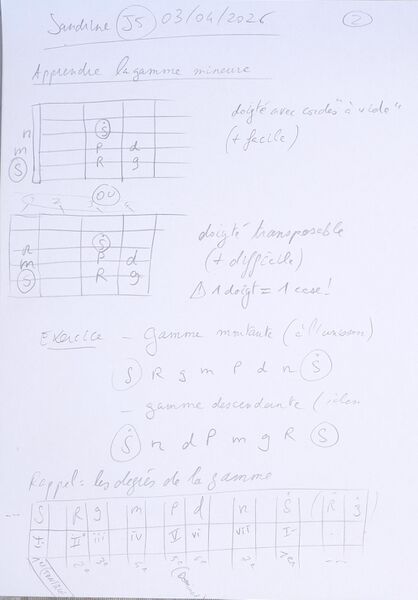 Sandrine J5 03/04/2026 2
Apprendre la gamme mineure
doigté avec cordes "à vide"
(+ facile)
Ṡ
n
m P d
S R g
ou
doigté transposable
(+ difficile)
⚠ 1 doigt = 1 case!
n Ṡ
m P d
S R g
Exercice - gamme montante (à l'unisson)
S R g m P d n Ṡ
- gamme descendante (idem
Ṡ n d P m g R S
Rappel: les degrés de la gamme
--- S R g m P d n Ṡ (Ṙ ġ)
I II° iii iv V vi vii I
2e 3e 4e 5e 6e 7e